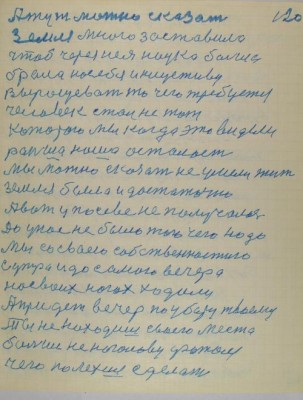 А тут можно сказат 120
Земля много заставила
чтоб через ней наука болша
брала насебя инициативу
выращеват то чего требуется
человек стал не тот
которого мы когда это видели
ранша наша осталост
мы можно сказат не умели жит
земля была и достаточно
Авот у посеве не получалося
До у нас не было того чего надо
Мы со своего собственностого
С утра и до самого вечера
на своих ногах ходили
А придет вечер по убазу твоему
Ты не находиш своего места
болит не наголову
чего полехш сделат